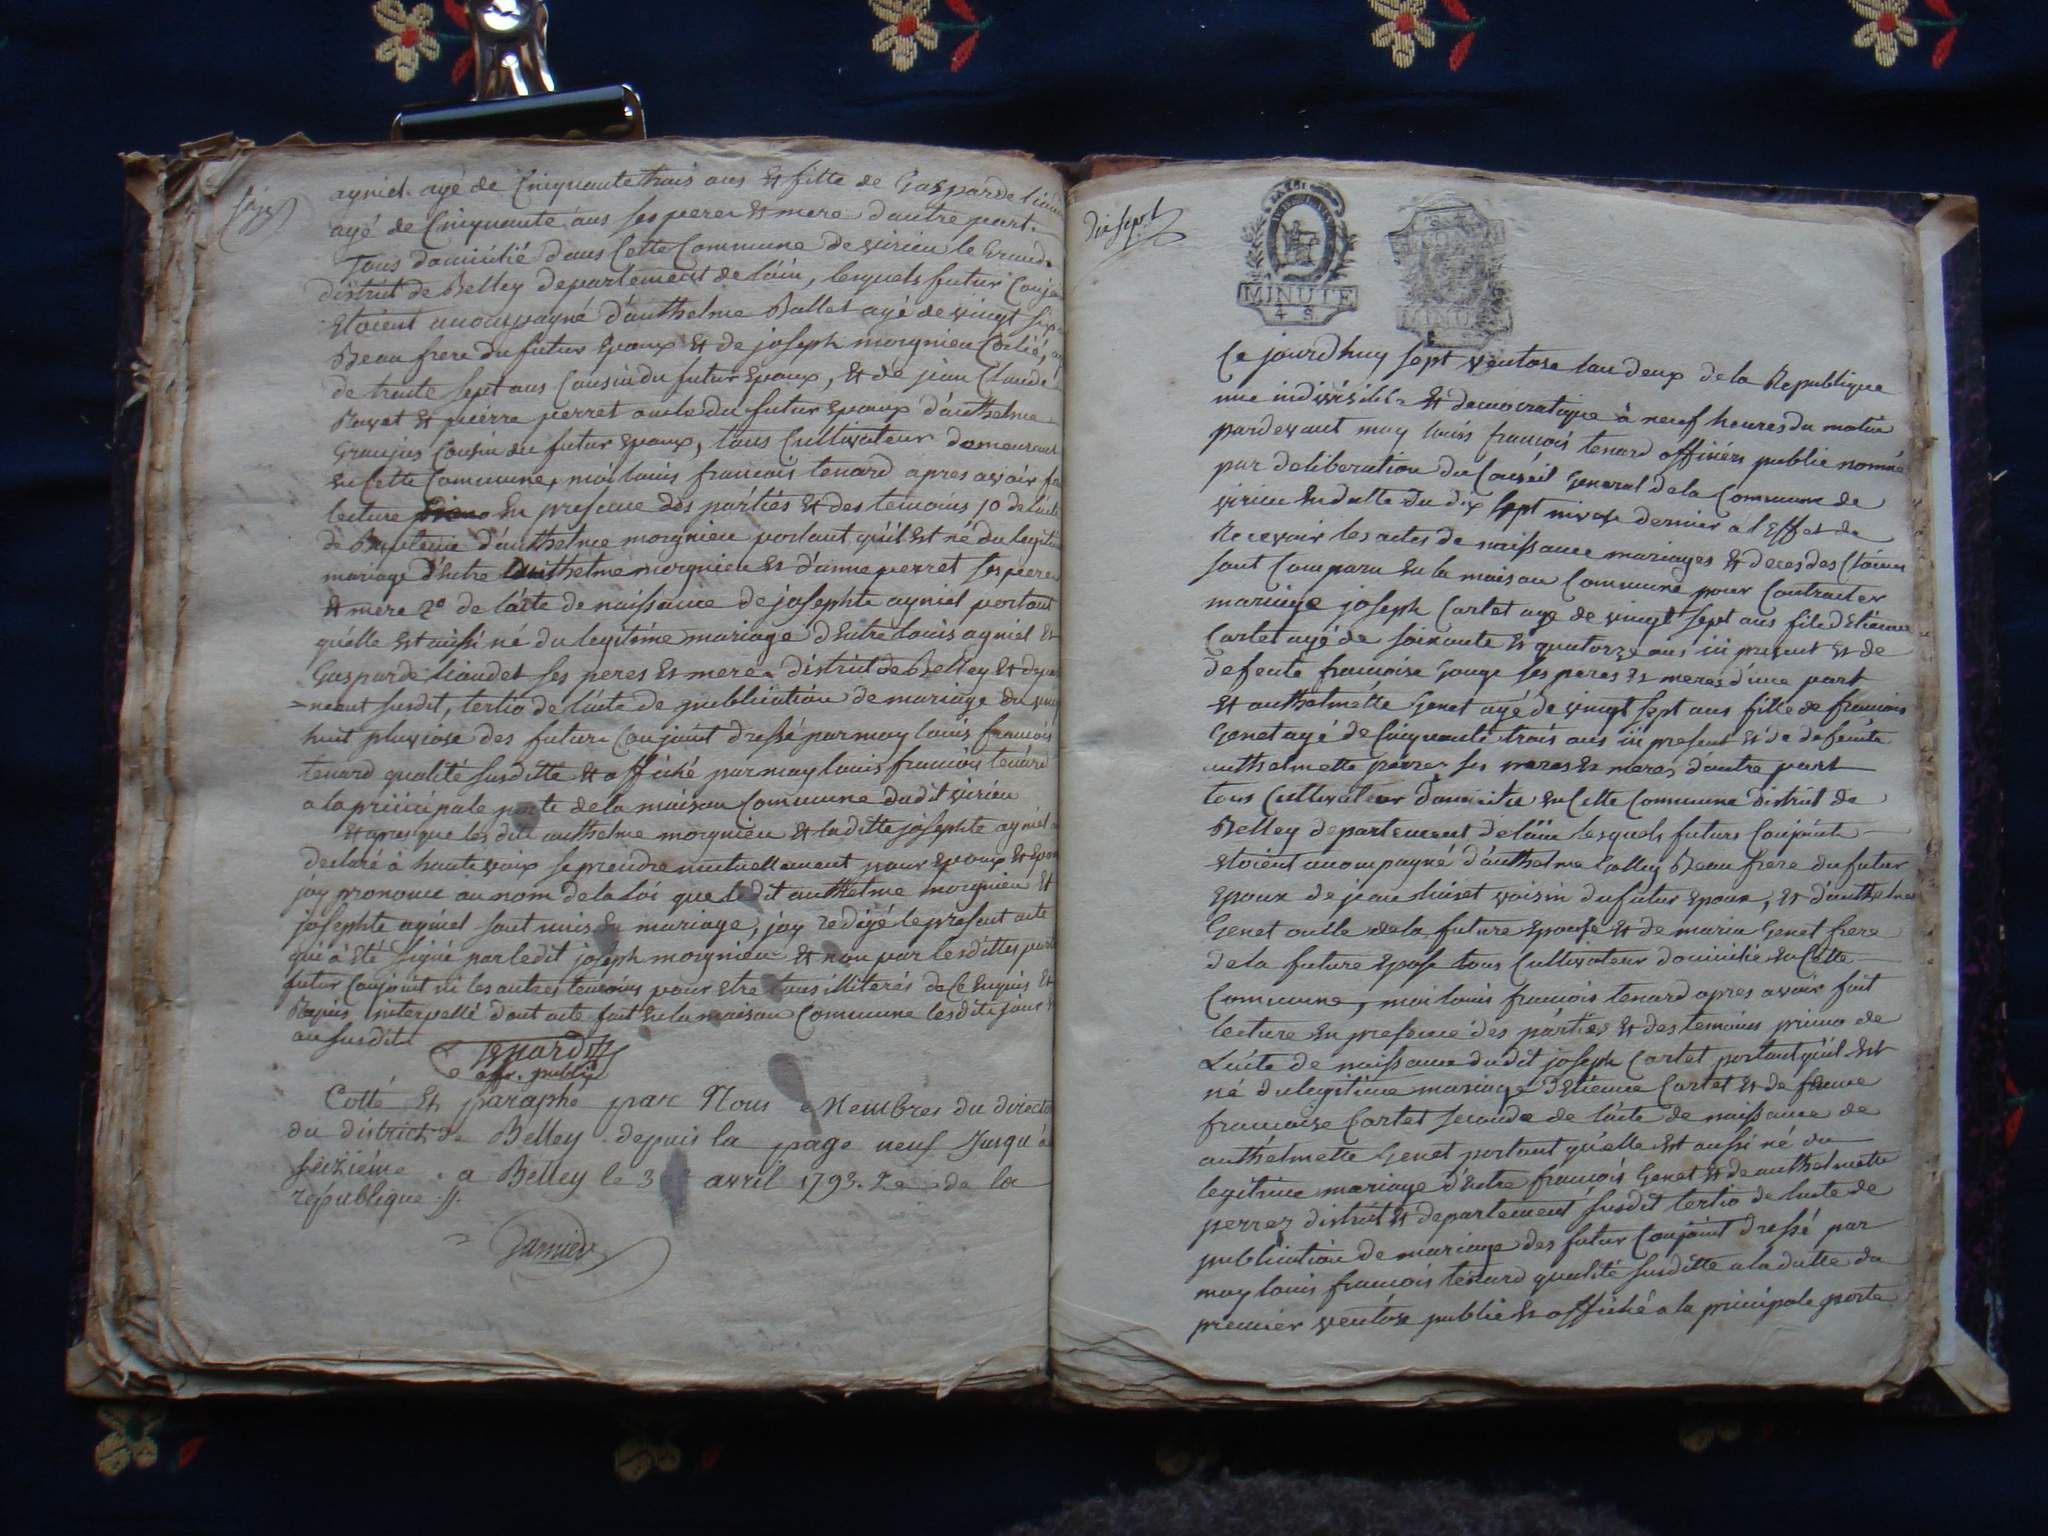 Seize
ayniel. ayé de Cinquante trois ans Et fille de Gasparde liaudet
ayé de Cinquante ans ses peres Et mere d'autre part.
Tous domicilié dans Cette Commune de virieu le Grand
district de Belley departement de l'ain, lesquels futur Conjoint
Etoient accompagné d'anthelme Ballet agé de vingt six
Beau frere du futur Epoux Et de joseph morgnieu
de trente sept ans Cousin du futur Epoux, Et de jean Claude
Et pierre perret oncle du futur Epoux d'anthelme
Cousin du futur Epoux, tous Cultivateur demeurant
En Cette Commune, moi louis francois tenard apres avoir fait
lecture En presence des parties Et des temoins 1o de l'acte
de Bapteme d'anthelme morgnieu portant qu'il Est né du legitime
mariage d'Entre anthelme morgnieu Et d'anne perret ses peres
Et mere 2o de l'acte de naissance de josephte ayniel portant
qu'elle Est aussi né du legitime mariage d'Entre louis ayniel Et
Gasparde liaudet ses peres Et mere district de Belley Et depar
=ment susdit, tertio de l'acte de publication de mariage du vingt
huit pluviose des futur Conjoint dressé par moy louis francois
tenard qualité susditte Et affiché par moy louis francois tenard
a la principale porte de la maison Commune dudit virieu
Et apres que lesdits anthelme morgnieu Et laditte josephte ayniel
declaré à haute voix se prendre mutuellement pour Epoux Et Epouse
jay prononcé au nom de la loi que ledit anthelme morgnieu Et
josephte ayniel sont unis En mariage, jay redigé le present acte
qui à été signé par ledit joseph morgnieu Et non par lesdittes parties
futur Conjoint ni les autres temoins pour Etre tous illiterés de Ce Enquis Et
Requis interpellé dont acte fait En la maison Commune lesdits jour Et
an susdits
Tenard
off. public
Cotté Et paraphé par Nous Membres du directoire
du district de Belley depuis la page neuf Jusqu'à
seizième. a Belley le 3 avril 1793. 2e de la
republique.
dix sept
MINUTE
4 S.
MINUTE
Ce jourdhuy sept ventose l'an deux de la Republique
une indivisible Et democratique à neuf heures du matin
pardevant moy louis francois tenard officiers public nommé
par deliberation du Conseil General de la Commune de
virieu En datte du dix sept nivose dernier à l'Effet de
Recevoir les actes de naissance mariages Et deces des Citoien
sont Comparu En la maison Commune pour Contracter
mariage joseph Cartet age de vingt sept ans fils d'Etienne
Cartet ayé de soixante Et quatorze ans ici present Et de
defente francoise Gouge ses peres Et meres d'une part
Et anthelmette Genet ayé de vingt sept ans fille de francois
Genet ayé de Cinquante trois ans ici present Et de defeinte
anthelmette perrer ses peres Et meres dautre part
tous Cultivateur domicilié En Cette Commune district de
Belley departement de l'ain lesquels futurs Conjoints
Etoient accompagné d'anthelme Beau frere du futur
Epoux de jean voisin du futur Epoux, Et d'anthelme
Genet oncle de la future Epouse Et de marin Genet frere
de la future Epose tous Cultivateur domicilié En Cette
Commune, moi louis francois tenard apres avoir fait
lecture En presence des parties Et des temoins primo de
L'acte de naissance dudit joseph Cartet portant qu'il Est
né du legitime mariage d'Etienne Cartet Et de femme
francoise Cartet seconde de l'acte de naissance de
anthelmette Genet portant qu'elle Est aussi né du
legitime mariage d'Entre francois Genet Et de anthelmette
perrer district Et departement susdit tertio de l'acte de
publication de mariage des futur Conjoint dressé par
moy louis francois tenard qualité susditte a la datte du
premier ventose publié Et affiché a la principale porte